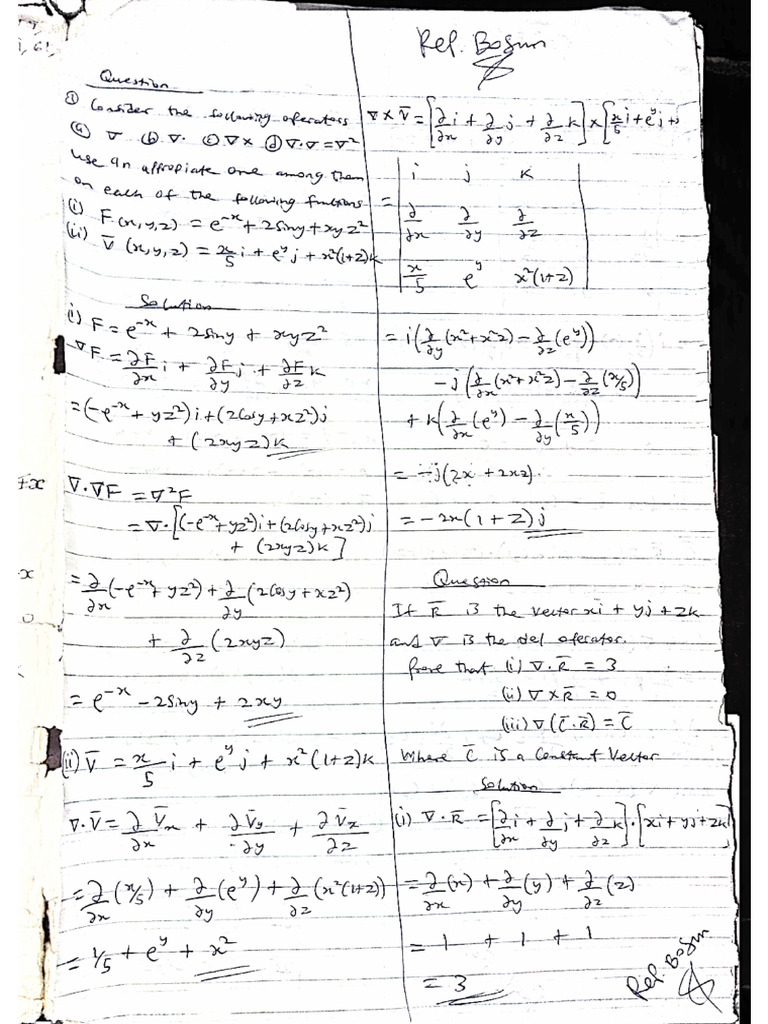 Rel. Bosun
Question
① Consider the following operators
ⓐ ∇ ⓑ ∇· ⓒ ∇× ⓓ ∇·∇ = ∇²
use an appropiate one among them
on each of the following functions
(i) F(x,y,z) = e^-x + 2siny + xyz²
(ii) V̄ (x,y,z) = x/5 i + e^y j + x²(1+z)k
Solution
(i) F = e^-x + 2siny + xyz²
∇F = ∂F/∂x i + ∂F/∂y j + ∂F/∂z k
= (-e^-x + yz²)i + (2cosy + xz²)j
+ (2xyz)k
∇·∇F = ∇²F
= ∇·[(-e^-x + yz²)i + (2cosy + xz²)j
+ (2xyz)k]
= ∂/∂x (-e^-x + yz²) + ∂/∂y (2cosy + xz²)
+ ∂/∂z (2xyz)
= e^-x - 2siny + 2xy
(ii) V̄ = x/5 i + e^y j + x²(1+z)k
∇·V̄ = ∂V̄x/∂x + ∂V̄y/∂y + ∂V̄z/∂z
= ∂/∂x (x/5) + ∂/∂y (e^y) + ∂/∂z (x²(1+z))
= 1/5 + e^y + x²
∇ × V̄ = [∂/∂x i + ∂/∂y j + ∂/∂z k] × [x/5 i + e^y j +
i j k
= ∂/∂x ∂/∂y ∂/∂z
x/5 e^y x²(1+z)
= i(∂/∂y (x²+x²z) - ∂/∂z (e^y))
- j(∂/∂x (x²+x²z) - ∂/∂z (x/5))
+ k(∂/∂x (e^y) - ∂/∂y (x/5))
= -j(2x + 2xz)
= -2x(1+z)j
Question
If R̄ is the vector xi + yj + zk
and ∇ is the del operator.
Prove that (i) ∇·R̄ = 3
(ii) ∇×R̄ = 0
(iii) ∇(C̄·R̄) = C̄
Where C̄ is a constant Vector
Solution
(i) ∇·R̄ = [∂/∂x i + ∂/∂y j + ∂/∂z k]·[xi + yj + zk]
= ∂/∂x (x) + ∂/∂y (y) + ∂/∂z (z)
= 1 + 1 + 1
= 3
Rel. Bosun